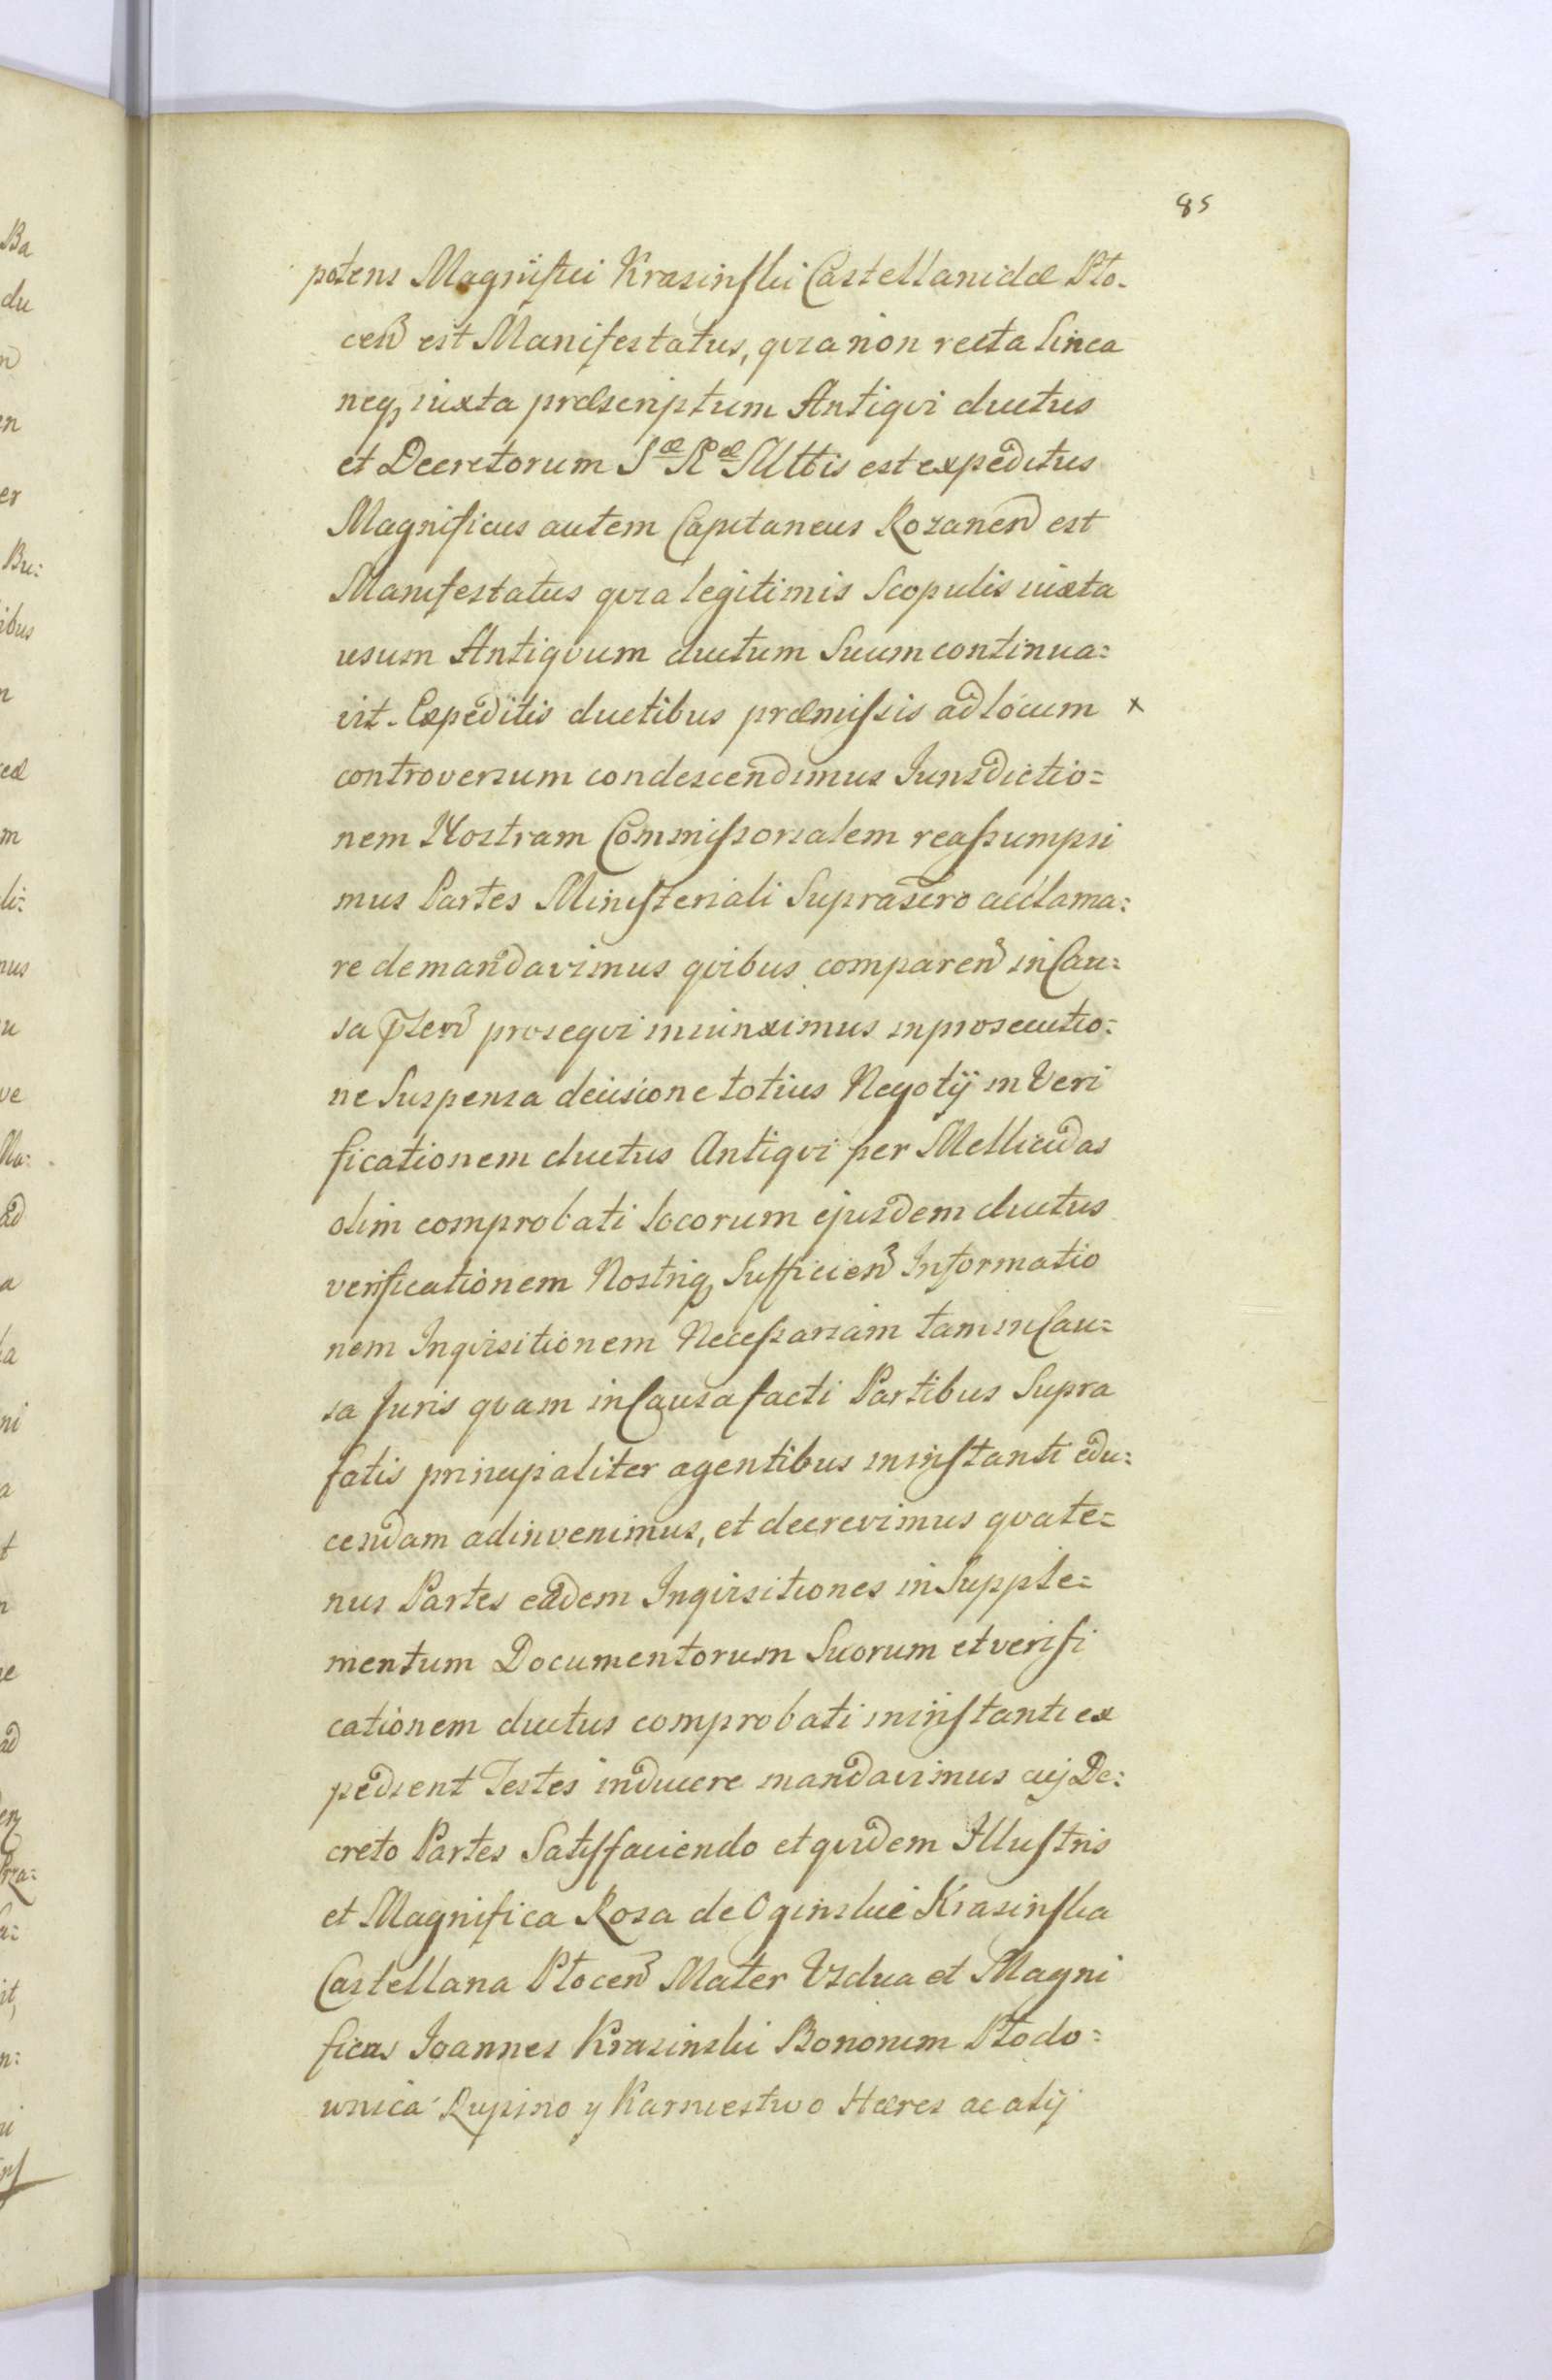 85
potens Magnifici Krasinski Castellanidæ Plo-
cen̄ est Manifestatus, qvia non recta linea
neq, iuxta præscriptum Antiqvi ductus
et Decretorum Sæ Ræ Mttis est expeditus
Magnificus autem Capitaneus Rozanen̄ est
Manifestatus qvia legitimis Scopulis iuxta
usum Antiqvum ductum Suum continua=
vit. Expeditis ductibus præmissis ad locum x
controversum condescendimus Jurisdictio=
nem Nostram Commissorialem reassumpsi
mus Partes Ministeriali Suprascro acclama=
re demandavimus qvibus comparen̄ in Cau=
sa p̄sen̄ proseqvi iniunximus in prosecutio=
ne Suspensa decisione totius Negotij in Veri
ficationem ductus Antiqvi per Mellicidas
olim comprobati locorum ejusdem ductus
verificationem Nostriq, Sufficien̄ Informatio
nem Inqvisitionem Necessariam tam in Cau=
sa Juris qvam in Causa facti Partibus Supra
fatis principaliter agentibus in instanti edu=
cendam adinvenimus, et decrevimus qvate=
nus Partes eædem Inqvisitiones in Supple=
mentum Documentorum Suorum et verifi
cationem ductus comprobati in instanti ex
pedient Testes inducere mandavimus cuj De=
creto Partes Satisfaciendo et qvidem Illustris
et Magnifica Rosa de Oginskie Krasinska
Castellana Plocen̄ Mater Vidua et Magni
ficus Joannes Krasinski Bonorum Plodo=
wnica Rupino y Karniestwo Hæres ac alij